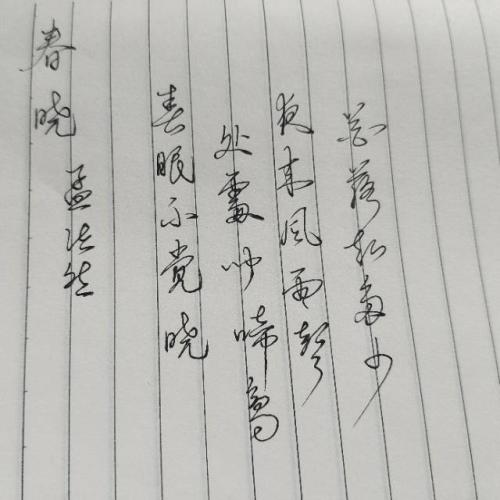 春晓
孟浩然
春眠不觉晓
处處闻啼鸟
夜来风雨聲
花落知多少